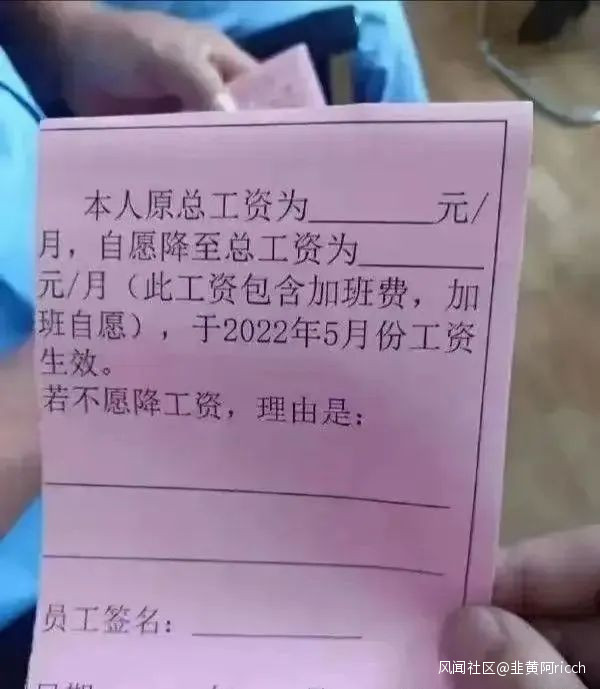 本人原总工资为______元/
月，自愿降至总工资为______
元/月（此工资包含加班费，加
班自愿），于2022年5月份工资
生效。
若不愿降工资，理由是：
员工签名：________
风闻社区@韭黄阿ricch